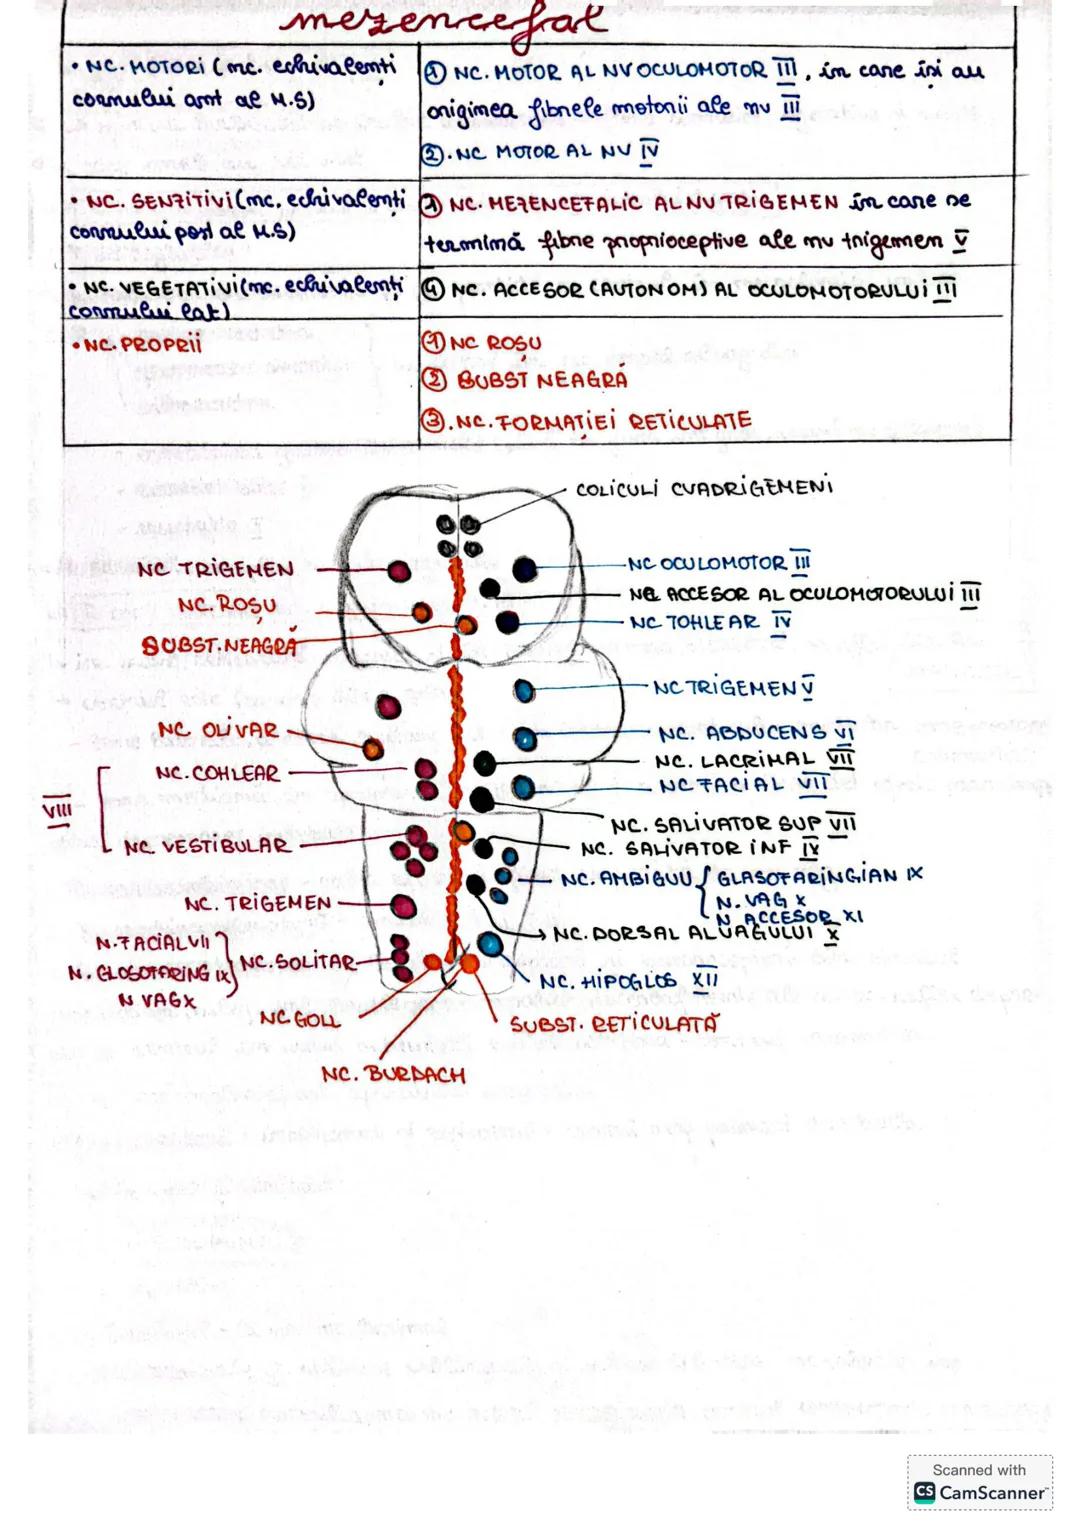 mezencefal
• NC. MOTORI (nc. echivalenți
cornului ant al M.S)
① NC. MOTOR AL NV OCULOMOTOR III, în care își au
originea fibrele motorii ale nv III
②. NC MOTOR AL NV IV
• NC. SENZITIVI (nc. echivalenți
cornului post al M.S)
① NC. MEZENCEFALIC AL NV TRIGEMEN în care se
termină fibre proprioceptive ale nv trigemen V
• NC. VEGETATIVI (nc. echivalenți
cornului lat)
④ NC. ACCESOR (AUTONOM) AL OCULOMOTORULUI III
• NC. PROPRII
① NC ROȘU
② SUBST NEAGRĂ
③. NC. FORMAȚIEI RETICULATE
COLICULI CVADRIGEMENI
NC TRIGEMEN
NC. ROȘU
SUBST. NEAGRĂ
NC OCULOMOTOR III
NC ACCESOR AL OCULOMOTORULUI III
NC TOHLEAR IV
NC TRIGEMEN V
NC. OLIVAR
NC. ABDUCENS VI
NC. LACRIMAL VII
NC. COHLEAR
NC FACIAL VII
VIII
NC. SALIVATOR SUP VII
NC. VESTIBULAR
NC. SALIVATOR INF IX
NC. AMBIGUU { GLASOFARINGIAN IX
N. VAG X
N ACCESOR XI
NC. TRIGEMEN
NC. DORSAL AL VAGULUI X
N. FACIAL VII
N. GLOSOFARING IX } NC. SOLITAR
N VAG X
NC. HIPOGLOS XII
NC. GOLL
SUBST. RETICULATĂ
NC. BURDACH
Scanned with
CS CamScanner